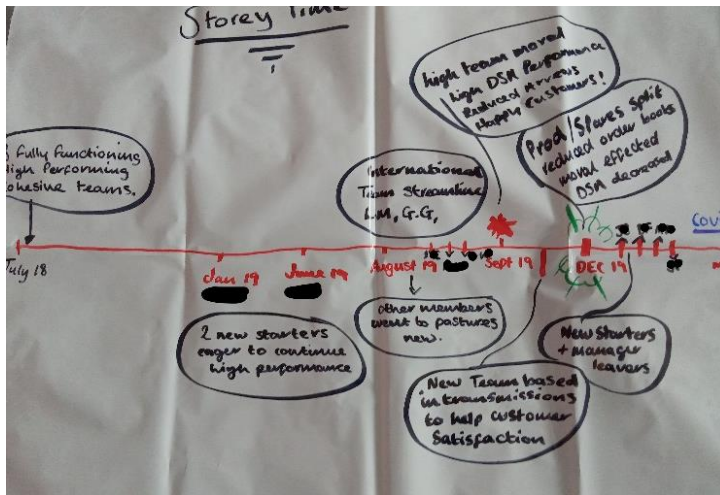 Storey Time
Fully Functioning
High Performing
cohesive teams.
International
Team Streamline
L.M, G.G,
high team moral
high DSA Performance
Reduced Arrears
Happy Customers!
Prod/Spares split
reduced order books
moral effected
DSA decreased
July 18
Jan 19
June 19
August 19
Sept 19
DEC 19
2 new starters
eager to continue
high performance
other members
went to pastures
new.
New Team based
in transmissions
to help customer
Satisfaction
New starters
+ manager
leavers